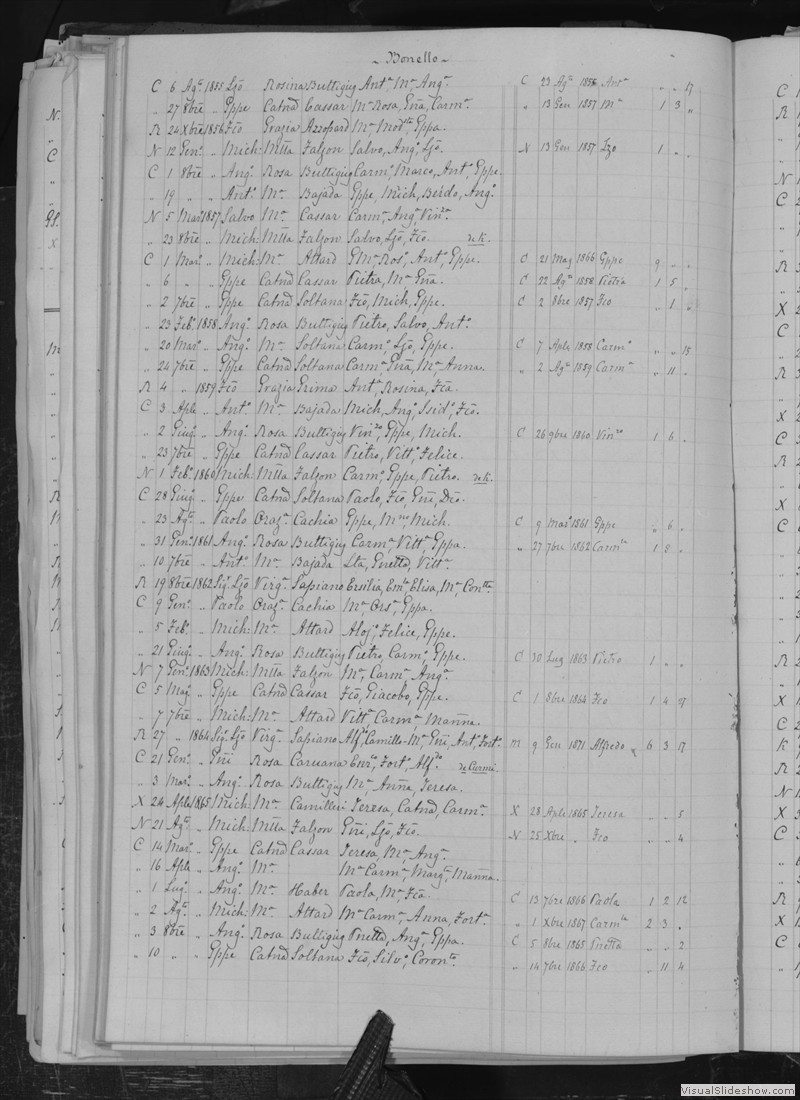 ~ Bonello ~
C 6 Agᵗᵒ 1855 Ljō Rosina Buttigieg Antᵃ, Mᵃ, Angᵃ. C 23 Agᵗᵒ 1856 Antᵃ „ „ 17
„ 27 8bre „ Gppe Catnā Cassar Mᵃ Rosa, Gñā, Carmᵃ. „ 13 Gen 1857 Mᵃ 1 3 „
R 24 Xbre 1856 Fcō Grazia Azzopard Mᵃ, Modᵗᵃ, Gppa.
N 12 Genᵒ „ Mich: Mtta Falzon Salvo, Angᵒ, Ljō. X 13 Gen 1857 Ljo 1 „ „
C 1 8bre „ Angᵒ Rosa Buttigieg Carmᵒ, Marco, Antᵒ, Gppe.
„ 19 „ „ Antᵒ Mᵃ Bajada Gppe, Mich, Berdo, Angᵒ.
N 5 Mar 1857 Salvo Mᵃ Cassar Carmᵃ, Angᵃ, Vinᶻᵃ.
„ 23 8bre „ Mich: Mtta Falzon Salvo, Ljō, Fcō.
C 1 Marᵒ „ Mich: Mᵃ Attard Mᵃ Rosᵃ, Antᵃ, Gppe. C 21 Mag 1866 Gppe 9 „ „
„ 6 „ „ Gppe Catnā Cassar Pietra, Mᵃ, Gñā. C 22 Agᵗᵒ 1858 Pietra 1 5 „
„ 2 7bre „ Gppe Catnā Soltana Fcō, Mich, Gppe. C 2 8bre 1857 Fco „ 1 „
„ 23 Febᵒ 1858 Angᵒ Rosa Buttigieg Pietro, Salvo, Antᵒ.
„ 20 Marᵒ „ Angᵒ Mᵃ Soltana Carmᵒ, Ljō, Gppe. C 7 Aple 1858 Carmᵒ „ „ 18
„ 24 7bre „ Gppe Catnā Soltana Carmᵃ, Gñā, Mᵃ, Anna. „ 2 Agᵗᵒ 1859 Carmᵃ „ 11 „
R 4 „ 1859 Fcō Grazia Grima Antᵃ, Rosina, Fcā.
C 3 Aple „ Antᵒ Mᵃ Bajada Mich, Angᵒ, Isidᵒ, Fcō.
„ 2 Giugᵒ „ Angᵒ Rosa Buttigieg Vinᶻᵒ, Gppe, Mich. C 26 9bre 1860 Vinᶻᵒ 1 6 „
„ 23 7bre „ Gppe Catnā Cassar Pietro, Vittᵒ, Felice.
N 1 Febᵒ 1860 Mich: Mtta Falzon Carmᵒ, Gppe, Pietro.
C 28 Giugᵒ „ Gppe Catnā Soltana Paolo, Fcō, Gñi, Dco.
„ 23 Agᵗᵒ „ Paolo Orazᵃ Cachia Gppe, Mⁿᵒ, Mich. C 9 Marᵒ 1861 Gppe „ 6 „
„ 31 Genᵒ 1861 Angᵒ Rosa Buttigieg Carmᵃ, Vittᵃ, Gppa. „ 27 7bre 1862 Carmᵃ 1 8 „
„ 10 7bre „ Antᵒ Mᵃ Bajada Lta, Gnetta, Vittᵃ.
R 19 8bre 1862 Sigᵒ Ljō Virgᵃ Sapiano Ersilia, Emᵃ, Elisa, Mᵃ, Conᵗᵗᵃ.
C 9 Genᵒ „ Paolo Orazᵃ Cachia Mᵃ, Orsᵃ, Gppa.
„ 5 Febᵒ „ Mich: Mᵃ Attard Alojᵒ, Felice, Gppe.
„ 21 Giugᵒ „ Angᵒ Rosa Buttigieg Pietro, Carmᵒ, Gppe. C 30 Lug 1863 Pietro 1 „ „
N 7 Genᵒ 1863 Mich: Mtta Falzon Mᵃ, Carmᵃ, Angᵃ.
C 5 Magᵒ „ Gppe Catnā Cassar Fcō, Giacobo, Gppe. C 1 8bre 1864 Fco 1 4 27
„ 7 7bre „ Mich: Mᵃ Attard Vittᵃ, Carmᵃ, Marīna.
R 27 „ 1864 Sigᵒ Ljō Virgᵃ Sapiano Alfᵒ, Camillo Mᵃ, Gñi, Antᵒ, Fortᵒ. M 9 Gen 1871 Alfredo 6 3 17
C 21 Genᵒ „ Gñi Rosa Caruana Enrᵒ, Fortᵒ, Alfᵒ.
„ 3 Marᵒ „ Angᵒ Rosa Buttigieg Mᵃ, Anna, Teresa.
X 24 Aple 1865 Mich: Mᵃ Camilleri Teresa, Catnā, Carmᵃ. X 28 Aple 1865 Teresa „ „ 5
N 21 Agᵗᵒ „ Mich: Mtta Falzon Gñi, Ljō, Fcō. N 25 Xbre „ Fco „ „ 4
C 14 Marᵒ „ Gppe Catnā Cassar Teresa, Mᵃ, Angᵃ.
„ 16 Aple „ Angᵒ Mᵃ Mᵃ Carmᵃ, Margᵗᵃ, Marīna.
„ 1 Lugᵒ „ Angᵒ Mᵃ Haber Paola, Mᵃ, Fcā. C 13 7bre 1866 Paola 1 2 12
„ 2 Agᵗᵒ „ Mich: Mᵃ Attard Mᵃ Carmᵃ, Anna, Fortᵃ. „ 1 Xbre 1867 Carmᵃ 2 3 „
„ 3 8bre „ Angᵒ Rosa Buttigieg Pnetta, Angᵃ, Gppa. C 5 8bre 1865 Pnetta „ „ 2
„ 10 „ „ Gppe Catnā Soltana Fcō, Silvᵒ, Coronᵗᵒ. „ 14 7bre 1866 Fco „ 11 4
VisualSlideshow.com